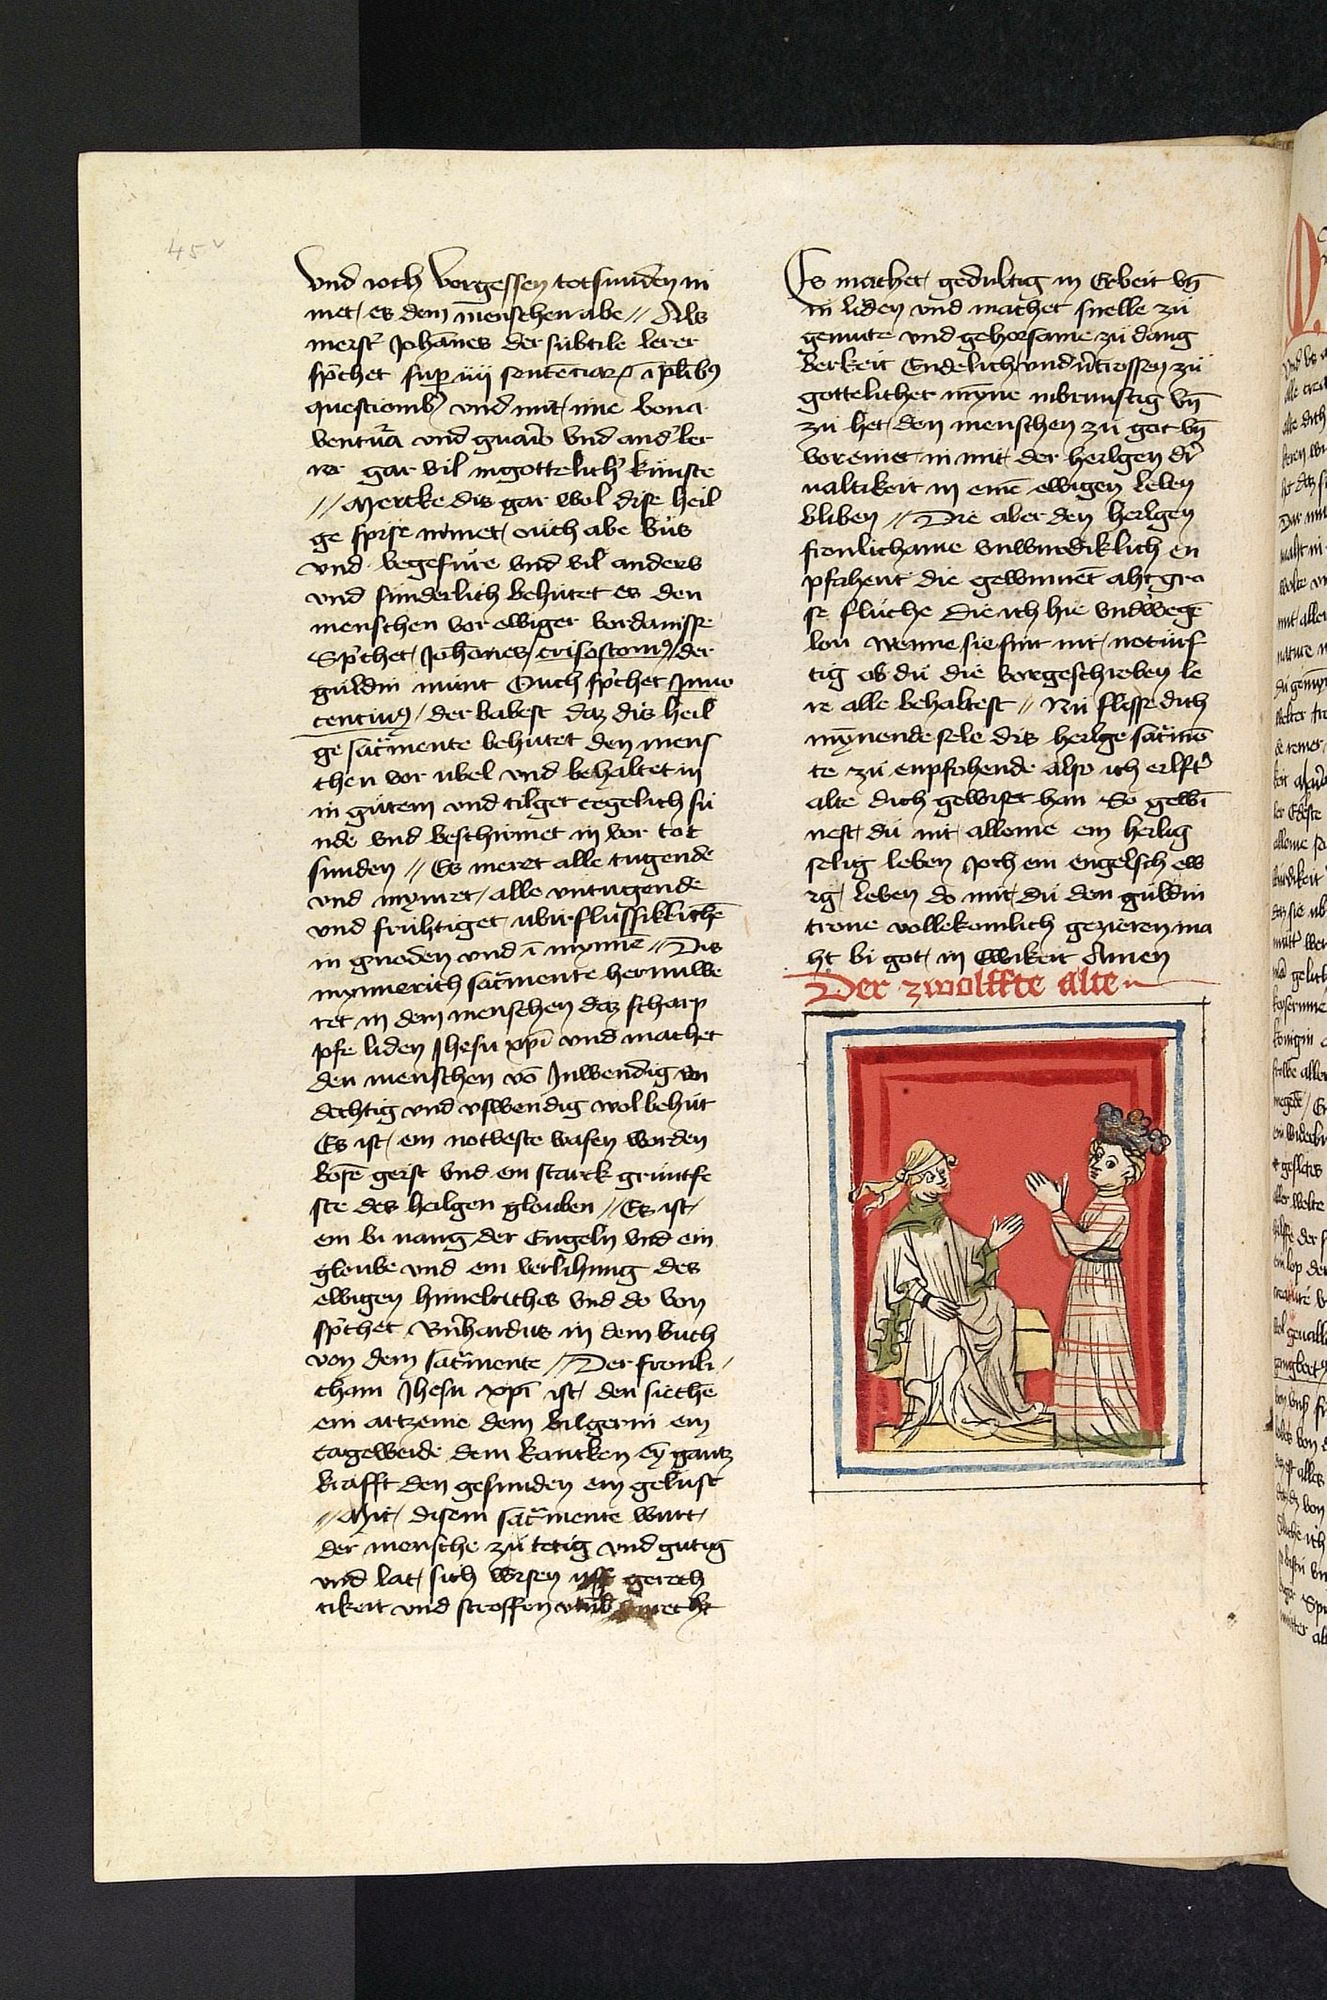 45v
Vnd och vorgessen totsunden ni
met es dem menschen abe // Als
meist͛ Johānes der subtile lerer
sp̄chet sup̱ iiij sentēciaꝝ ī plibꝰ
questionibꝰ vnd mit ime bona
ventura vnd and͛ ler
rer gar vil in gottelich͛ kunste
// Mercke dis gar wol dise heil
ge spise nimet ouch abe bůs
vnd vegefure vnd vil anders
vnd sunderlich behůtet es den
menschen vor ewiger vordamsse
Sp̄chet Johānes crisostomꝰ der
guldin munt Ouch sp̄chet Inno
centiuꝰ / der babest daz dis heil
ge sacͣmente behůtet den mens
chen vor ubel vnd behaltet in
in gutem vnd tilget tegelich su
nde vnd beschirmet in vor tot
sunden // Es meret alle tugende
vnd mynret alle vntugende
vnd fruhtiget uburflussiklichē
in gnoden vnd ī mynnē // Dis
mynnerich sacͣmente hernuwe
ret in dem menschen daz scharp
pfe liden Jhesu xp̄i vnd machet
den menschen vō Inwendig an
dechtig vnd uswendig wol behůt
Es ist ein notveste wafen worden
bosē geist vnd ein starck gruntfe
ste des heilgen glouben // Es ist
ein bi nang der Engeln vnd ein
gloube vnd ein verlihung des
ewigen himelriches vnd do von
sp̄chet Bn̄hardus in dem buch
von dem sacͣmente // Der fronli
cham Jhesu xp̄i ist den siechē
ein artzenie dem bilgerin ein
tageweide dem krancken eȳ gantz
krafft den gesunden ein gelust
// Mit disem sacͣmente wurt
der mensche zů tetig vnd gutig
vnd lat sich wisen uff gerech
tikeit vnd stroffen vmb
Es machet gedultig in Erbeit vn̄
in liden vnd machet snelle zů
gemute vnd gehorsame zů dang
berkeit Endelich vnd v̄trossen zů
gottelicher mȳne inbrunstig vn̄
zů het den menschen zů got vn̄
voreinet in mit der heilgen dr͛
ualtikeit in einē ewigen leben
bliben // Die aber den heilgen
fronlichame vnwirdiklich en
pfahent die gewinnēt aht gro
se flůche die ich hie vndwegē
lon wenne sie sint nit notůrf
tig ob dů die vorgeschreben le
re alle behaltest // Nů flisse dich
mȳnende sele dis heilge sacͣmē
te zů enpfohende also ich eilft͛
alte dich gewiset han So gewī
nest du nit alleine ein heilig
selig leben Joch ein engelsch ew
ig leben do mit dů den guldin
trone vollekomlich gezieren ma
ht bi got in Ewikeit Amen
Der zwolffte alte